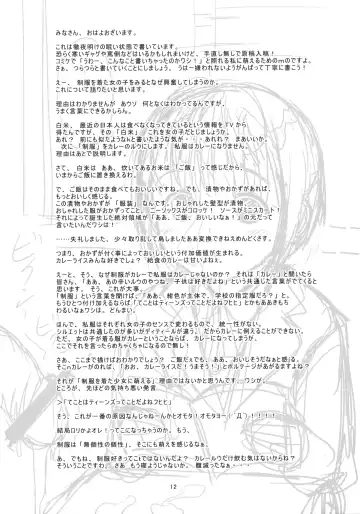 みなさん、おはよおざいます。
これは徹夜明けの眠い状態で書いています。
恐らく寒いギャグや罵倒などはあるかもしれまいけど、手直し無しで原稿入稿!
コミケで「うわー、こんなこと書いちゃったのかワシ!」と照れる私に萌えるためのｍのですよ。
さぁ、つらつらと書いていくことにしましょう。うは一嫌われないようがんばって丁寧に書こう!
えー、制服を着た女の子をみるとなぜ興奮してしまうのか。
これについて語りたいと思います。
理由はわかりませんが あウソ 何となくはわかってるんですが、
うまく言葉にできるかしらん。
白米、最近の日本人は食べなくなってきているという情報をTVから
得たんですが、その「白米」 これを女の子だとしましょうか。
あれ? 前にも似たようなんhを書いたような気がするな。あれ? まあいいか。
次に「制服」をカレーのルウにします。私服はカレーになりません。
理由はあとで説明します。
さて、白米は ああ、炊いてあるお米は「ご飯」って感じだから、
いまからご飯に置き換えるわ。
で、ご飯はそのまま食べてもおいしいですね。でも、漬物やおかずがあれば、
もっとおいしく感じる。
この漬物やおかずが「服装」なんですわ。おしゃれした髪型が漬物、
おしゃれした服がおかずってこと。ニーソックスがコロッケ! ソースがミニスカート!
それによって誕生した絶対領域が「ああ、ご飯、おいしいなぁ!」の元だって
言いたいんだわワシわ!
……失礼しました。少々取り乱して鳥しましたああ変換できねえめんどくさす。
つまり、おかずが付く事によっておいしいという付加価値が生まれる。
カレーライスみんな好きでしょ? 給食のカレーは甘いよねぇ。
えーと、そう、なぜ制服がカレーで私服はカレーじゃないのか? それは「カレー」と聞いたら
皆さん、「ああ、あの辛いルウのやつね、子供は好きだよね」という共通した言葉がでてくると
思います。そう、これが大事。
「制服」という言葉を聞けば、「ああ、紺色が主体で、学校の指定服だろ?」と、
もうひとつ付け加えるなら「てことはティーンズってことだよねフヒヒ」とかもあるかも
しれないけど、まぁ、とんまい。
ほんで、私服はそれぞれ女の子のセンスで変わるもので、統一性がない。
シルエットは共通したのが多いがディティールが違う。だからカレーに例えることができない。
ただ、女の子が着る服がカレーというならば、カレーになってしまうが、
ここでそれを言ったらわしがなくのでやめて!
さあ、ここまで描けばおわかりでしょう? ご飯だねえでも、ああ、おいしそうだなぁと感じる。
そこへカレーがのれば、「おお、カレーライスだ! うまそう!」とボルテージがあがりますよねぇ?
それが「制服を着た少女に萌える」理由ではないかと思うんです……ワシが。
ところが、先ほどの気持ち悪い発言
>「てことはティーンズってことだよねフヒヒ」
そう、これが一番の原因なんじゃねーんかとオモタ! オモタヨー!゛Д゛)!!!!
結局ロリがよオレ! ってこになっちゃうのか。もう、
制服は「無個性の個性」。そこにも萌えを感じるなぁ。
あ、でもね、制服好きってこていう訳じゃないんだよ? カレールウだけ飲む気はないからね?
そういうことですね。さあ、もう寝ようじゃないか。腹減ったなぁ。
12